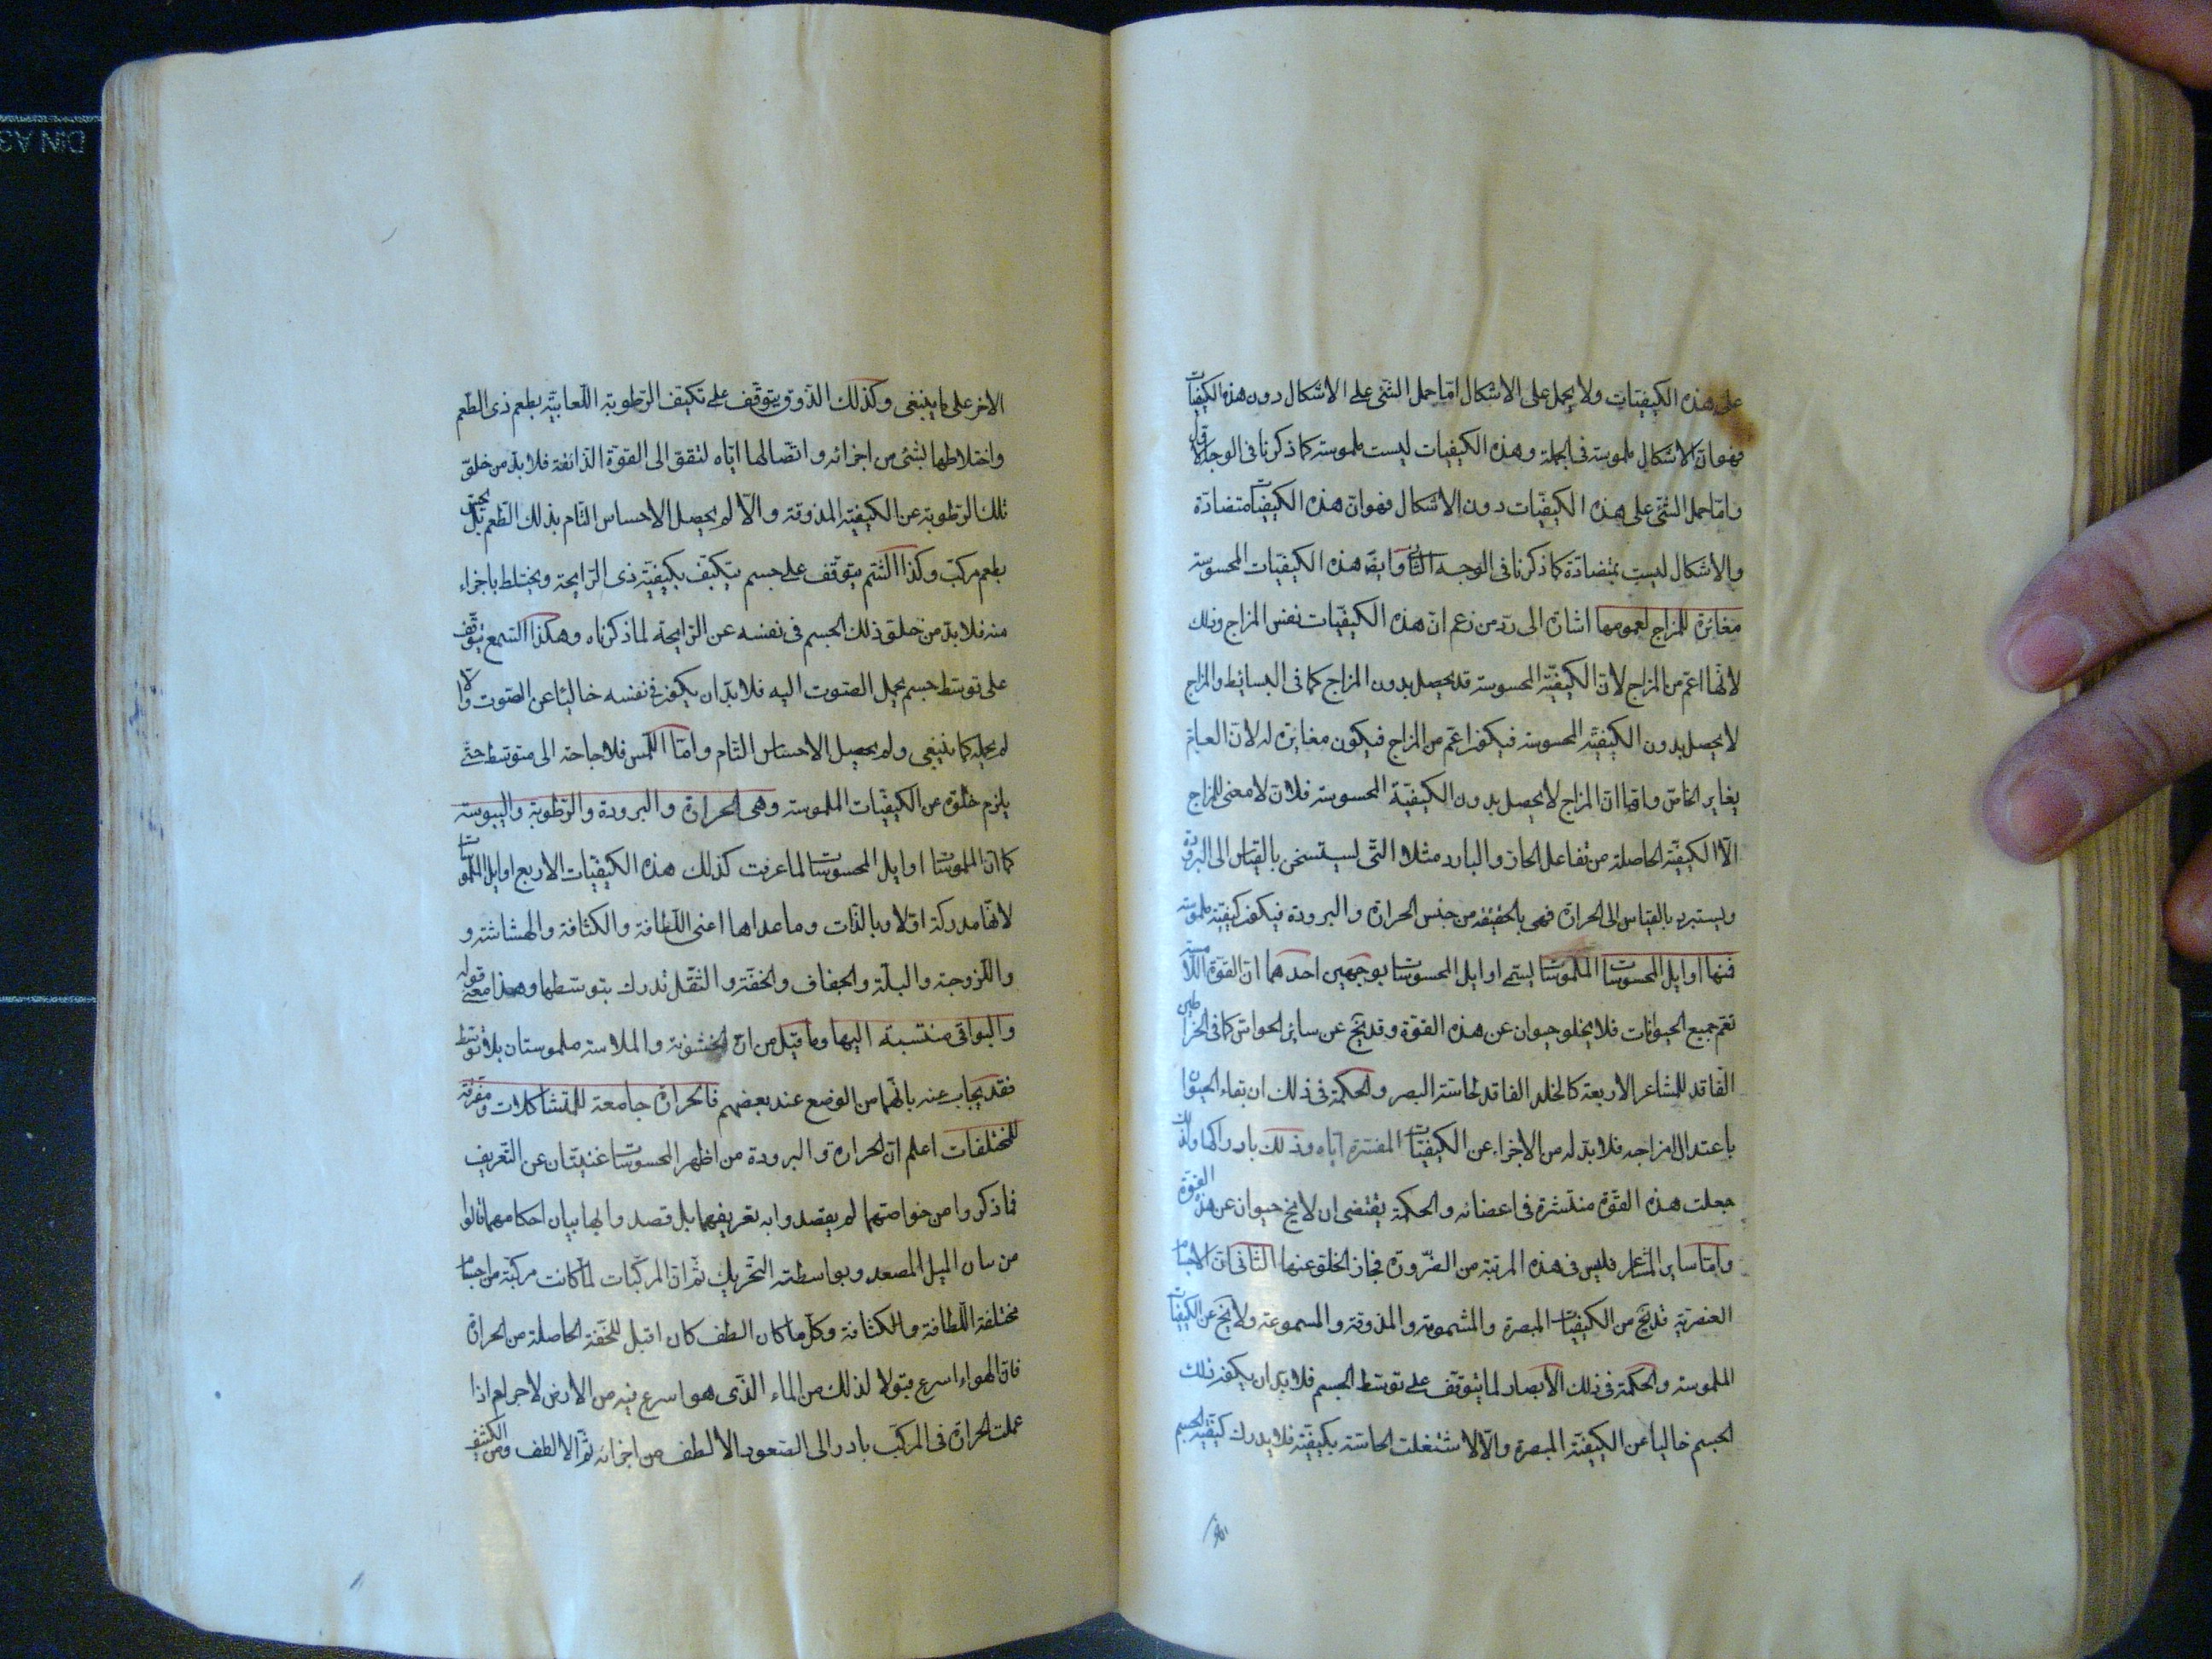 على هذه الكيفيات ولا يحمل على الاشكال امّا حمل الشئ على الاشكال دون هذه الكيفيات
فهو ان الاشكال ملموسة فى الجملة وهذه الكيفيات ليست ملموسة كما ذكرنا فى الوجه الاول
وامّا حمل الشئ على هذه الكيفيّات دون الاشكال فهو انّ هذه الكيفيّات متضادّة
والاشكال ليست بمتضادّة كما ذكرنا فى الوجه الثانى وايضا هذه الكيفيات المحسوسة
مغائرة للمزاج لعمومها اشارة الى ردّ من زعم انّ هذه الكيفيّات نفس المزاج وذلك
لانّها اعمّ من المزاج لانّ الكيفيّة المحسوسة قد يحصل بدون المزاج كما فى البسائط والمزاج
لا يحصل بدون الكيفيّة المحسوسة فيكون اعمّ من المزاج فيكون مغايرة له لانّ العامّ
يغاير الخاصّ وامّا انّ المزاج لا يحصل بدون الكيفيّة المحسوسة فلانّ لا معنى للمزاج
الّا الكيفيّة الحاصلة من تفاعل الحارّ والبارد مثلا التى يستسخن بالقياس الى البرودة
ويستبرد بالقياس الى الحرارة فهى بالحقيقة من جنس الحرارة والبرودة فيكون كيفيّة ملموسة
فمنها اوايل المحسوسات الملموسات ليسمى اوايل المحسوسات بوجهين احدهما انّ القوّة اللامسة
تعم جميع الحيوانات فلا يخلو حيوان عن هذه القوّة وقد يخ عن ساير الحواسّ كما فى الخراطين
الفاقد للمشاعر الاربعة كالخلد الفاقد لحاسّة البصر والحكمة فى ذلك ان بقاء الحيوان
باعتدال مزاجه فلا بدّ له من الاحتراز عن الكيفيّات المفسدة ايّاه وذلك بادراكها ولذلك
جعلت هذه القوّة منتشرة فى اعضائه والحكمة يقتضى ان لا يخ حيوان عن هذه القوّة
وامّا ساير المشاعر فليس فى هذه المرتبة من الضّرورة فجاز الخلو عنها الثّانى انّ الاجسام
العنصريّة قد يخ من الكيفيّات المبصرة والمشمومة والمذوقة والمسموعة ولا يخ عن الكيفيات
الملموسة والحكمة فى ذلك انّ الابصار لما يتوقّف على توسّط الجسم فلا بدّ ان يكون ذلك
الجسم خاليا عن الكيفيّة المبصرة والّا لاشتغلت الحاسّة بكيفيّته فلا يدرك كيفيّة الجسم
الاخر على ما ينبغى وكذلك الذّوق يتوقّف على تكيّف الرّطوبة اللّعابيّة بطعم ذى الطّعم
واختلاطها بشئ من اجزائه واتّصالها ايّاه لتقق الى القوّة الذّائقة فلا بدّ من خلوّ
تلك الرّطوبة عن الكيفيّة المذوقة والّا لم يحصل الاحساس التّام بذلك الطّعم بل يحسّ
بطعم مركّب وكذا الشّم يتوقّف على جسم يتكيّف بكيفيّة ذى الرّايحة ويختلط باجزاء
منه فلا بدّ من خلوّ ذلك الجسم فى نفسه عن الرّايحة لما ذكرناه وهكذا السّمع يتوقّف
على توسّط جسم يحمل الصّوت اليه فلا بدّ ان يكون فى نفسه خاليا عن الصّوت والّا
لم يحمله كما ينبغى ولم يحصل الاحساس التّام وامّا اللّمس فلا حاجة الى متوسّط حتّى
يلزم خلّوه عن الكيفيّات الملموسة وهى الحرارة والبرودة والرّطوبة واليبوسة
كما انّ الملموسات اوايل المحسوسات لما عرفت كذلك هذه الكيفيّات الاربع اوايل الملموسات
لانّها مدركة اوّلا وبالذّات وما عداها اعنى اللّطافة والكثافة والهشاشة و
واللّزوجة والبلّة والجفاف والخفّة والثّقل تدرك بتوسّطها وهذا معنى قوله
والبواقى منتسبة اليها وما قيل من انّ الخشونة والملاسة ملموستان بلا توسّط
فقد يجاب عنه بانّهما من الوضع عند بعضهم فالحرارة جامعة للمتشاكلات ومفرّقة
للمختلفات اعلم انّ الحرارة والبرودة من اظهر المحسوسات غنيّتان عن التّعريف
فما ذكروا من خواصّهما لم يقصدوا به تعريفهما بل قصدوا بها بيان احكامهما قالوا
من شان الميل المصعد وبواسطته التّحريك ثمّ انّ المركّبات لمّا كانت مركّبة من اجسام
مختلفة اللّطافة والكثافة وكلّ ما كان الطف كان اقبل للخفّة الحاصلة من الحرارة
فانّ الهواء اسرع قبولا لذلك من الماء الّذى هو اسرع فيه من الارض لا جرم اذا
عملت الحرارة فى المركّب بادر الى الصّعود الالطف من اجزائه ثمّ الالطف ومن الكثيف